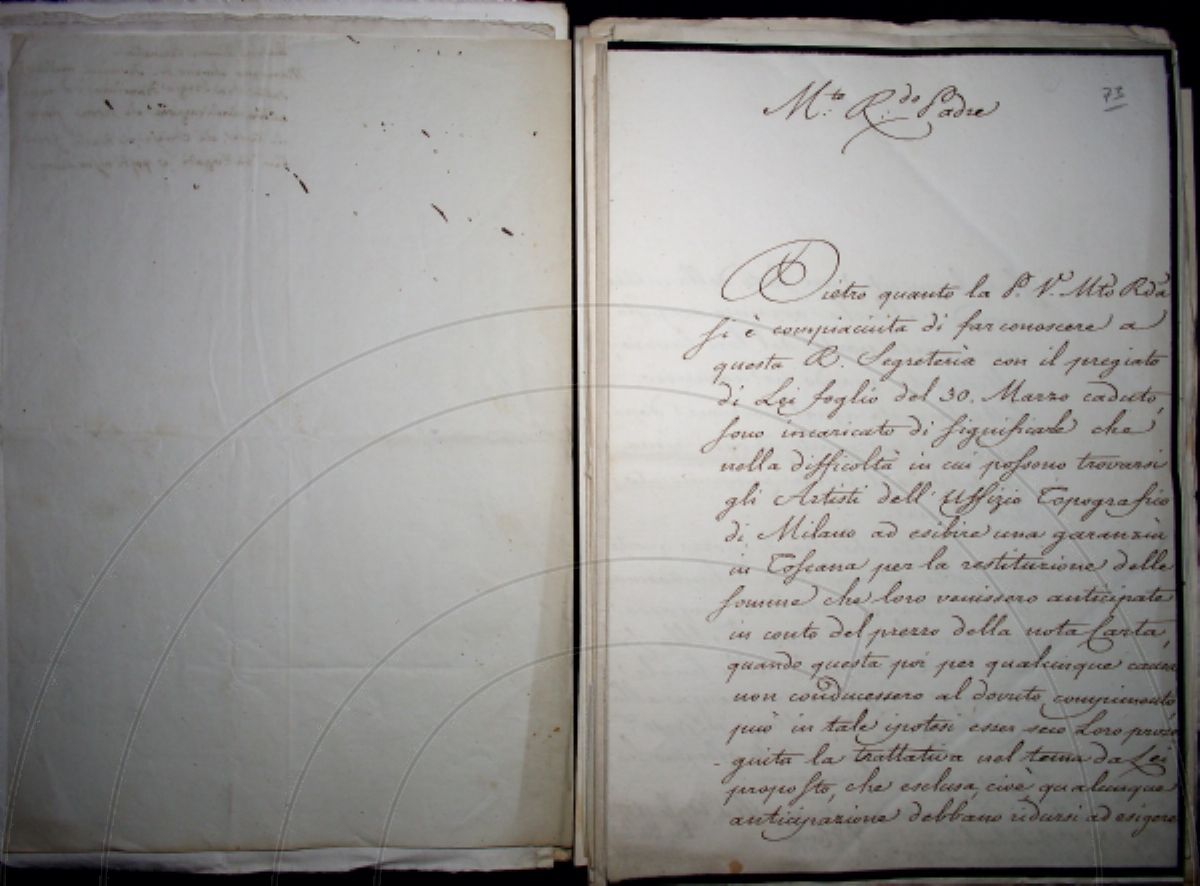 73
M.to R.do Padre
Dietro quanto la P. V. M.to R.da
si è compiaciuta di far conoscere a
questa R. Segreteria con il pregiato
di Lei foglio del 30. Marzo caduto,
sono incaricato di significarle che
nella difficoltà in cui possono trovarsi
gli Artisti dell' Uffizio Topografico
di Milano ad esibire una garanzia
in Toscana per la restituzione delle
somme che loro venissero anticipate
in conto del prezzo della nota Carta,
quando questa poi per qualunque causa
non conducessero al dovuto compimento,
può in tale ipotesi esser seco Loro prose
guita la trattativa nel tema da Lei
proposto, che esclusa, cioè qualunque
anticipazione debbano ridursi ad esigere